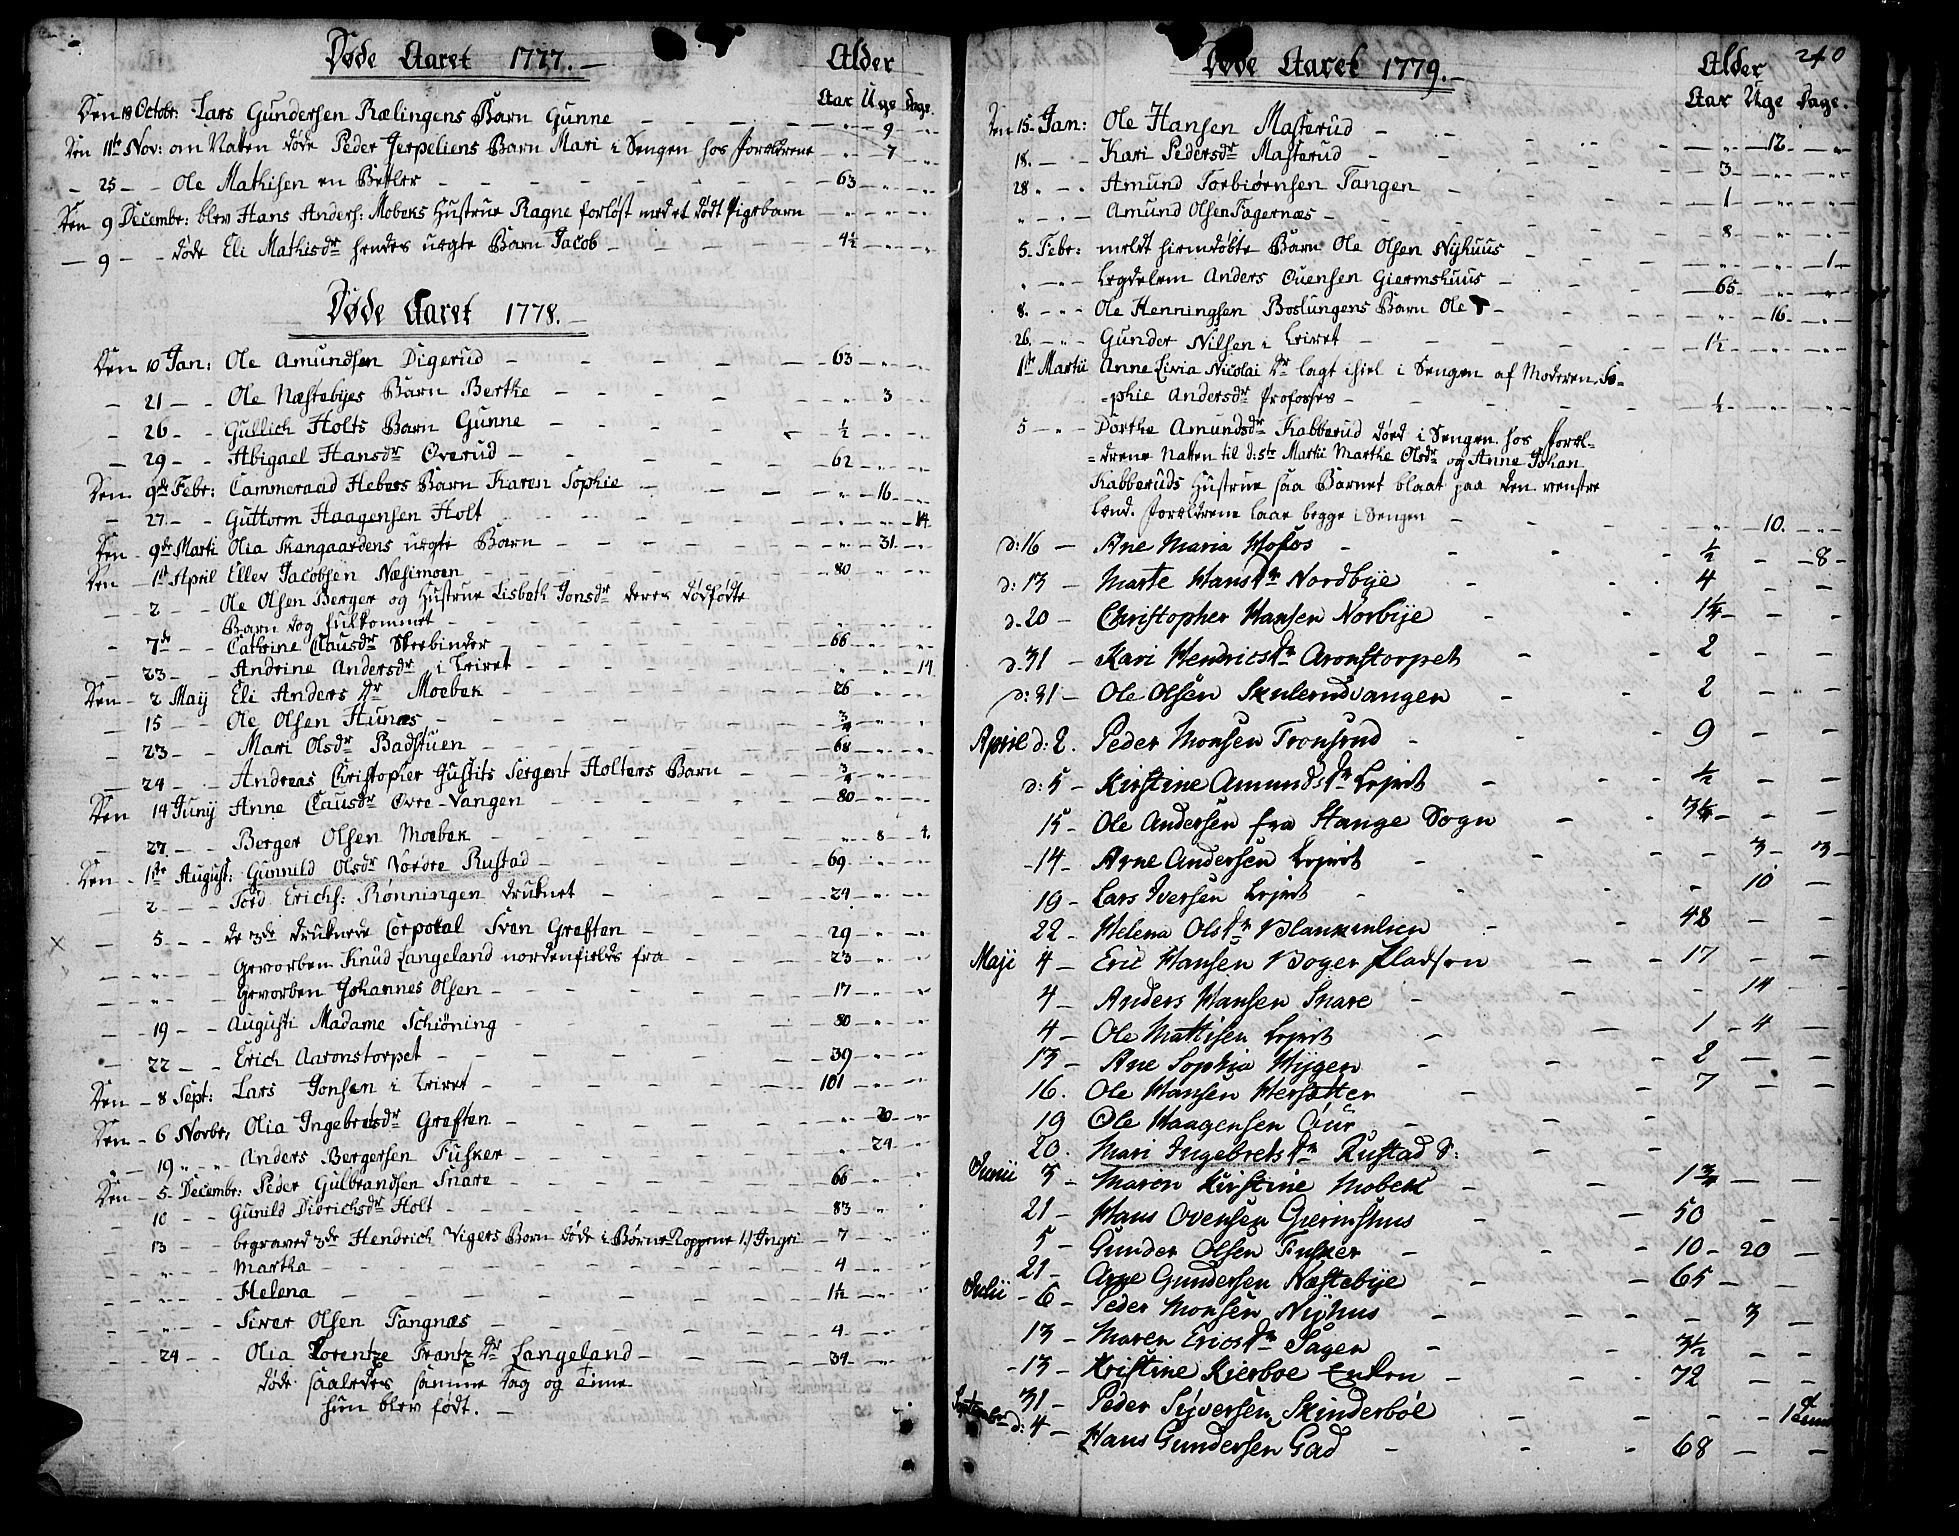 Døde Aaret 1777. Alder
Aar Uge Dage.
Den 18 Octobr: Lars Gundersen Rælingens Barn Gunne - 9 -
Den 11te Nov: om Natten døde Peder Jerpeliens Barn Mari i Sengen hos Forældrene - 7 -
- 25 - Ole Mathisen en Betler - 63 - -
Den 9 Decembr: blev Hans Anders: Mobeks Hustrue Ragne forløst med et dødt Pigebarn
- 9 - døde Eli Mathisdr hendes uægte Barn Jacob - 4½ - -
Døde Aaret 1778.
Den 10 Jan: Ole Amundsen Digerud - 63 - -
- 21 - Ole Næstebyes Barn Berthe - 3 -
- 26 - Gullich Holts Barn Gunne - ½ - -
- 29 - Abigael Hansdr Øverud - 62 - -
Den 9de Febr: Cammeraad Hebers Barn Karen Sophie - 16 -
- 27 - Guttorm Haagensen Holt - 14
Den 9de Marti Olia Skangaardens uægte Barn - 31 -
Den 1ste April Eller Jacobsen Næsimoen - 80 - -
- 2 - Ole Olsen Berger og Hustrue Lisbeth Jonsdr deres dødfødte
Barn dog fulkommet -
- 7de - Cathrine Clausdr Skeebinder - 66 - -
- 23 - Andrine Andersdr i Leiret - 14
Den 2 Maij Eli Anders dr Moebek - 26 - -
- 15 - Ole Olsen Hunæs - ¾ - -
- 23 - Mari Olsdr Badstuen - 68 - -
- 24 - Andreas Christopher Gustits Sergent Holters Barn - ¾ - -
Den 14 Junij Anne Clausdr Øvre-Vangen - 80 - -
- 27 - Berger Olsen Moebek - 8 - 4.
Den 1ste August: Gunnild Olsdr Nordre Rustad - 69 - -
- 2 - Tord Erichs: Rønningen druknet - 24 - -
- 5 - de 3de druknede Corporal Sven Greften - 29 - -
- - Gevorben Knud Langeland nordenfields fra - 23 - -
- - Gevorben Johannes Olsen - 17 - -
- 19 - Augusti Madame Schiøning - 80 - -
- 22 - Erich Aaronstorpet - 39 - -
Den 8 Sept: Lars Jonsen i Leiret - 101 - -
Den 6 Novbr: Olia Ingebretsdr Greften - 20 -
- 19 - Anders Bergersen Fusker - 24 -
Den 5 Decembr: Peder Gulbrandsen Snare - 66 - -
- 10 - Gunild Didrichsdr Holt - 83 - -
- 13 - begraved 3de Hendrich Vigers Born døde i Børne-Koppene 1.) Ingri - 7 - -
- - Martha - 4 - -
- - Helena - 1½ - -
- - Siver Olsen Tangnæs - 4 - -
- 24 - Olia Lorentze Frantz dr Langeland - 34 - -
døde saaledes samme Dag og Time
hun blev født. -
240
Døde Aaret 1779. Alder
Aar Uge Dage.
Den 15 Jan: Ole Hansen Masterud - 12 -
18. - Kari Pedersdr Masterud - 3 - -
28 - Amund Torbiørnsen Tangen - 1 - -
- - Amund Olsen Fagernæs - 8 - -
5 Febr: meldt hiemdøbte Barn Ole Olsen Nyhuus - 1
- - Legdelem Anders Ouensen Giermshuus - 65 - -
8. - Ole Henningsen Boslungens Barn Ole - 16 -
26. - Gunder Nilsen i Leiret - 1½ - -
1te Martii Anne Livia Nicolai dr lagt ihiel i Sengen af Moderen So-
-phie Andersdr Profosses - ½ - -
5 - Dorthe Amundsdr Kabberud død i Sengen hos Foræl-
-drene Natten til d: 5te Martii Marthe Olsdr og Anne Johan
Kabberuds Hustrue saa Barnet blaat paa den venstre
Lænd. Forældrene laae begge i Sengen - 10. -
d: 16 - Ane Maria Hofos - ½ - 8 -
d: 13 - Marte Hansdr Nordbye - 4 - -
d. 20 - Christopher Hansen Norbije - 1¼ - -
d. 31 - Kari Hendricsdr Aronstorpet - 2 - -
d: 31 - Ole Olsen Skulerudvangen - 2 - -
April d: 2. Peder Monsen Tronsrud - 9 - -
d: 5 - Kirstine Amundsdr Lejret - ½ - -
15 - Ole Andersen fra Stange Sogn - 3¼ - -
14 - Arne Andersen Lejret - 3 - 3 -
19 - Lars Iversen Lejret - 10 -
22 - Helena Olsdr Blankenlien - 48 - -
Maji 4 - Eric Hansen Boger Pladsen - 17 - -
4 - Anders Hansen Snare - 14 -
4 - Ole Mattisen Lejret - 1 - 4 -
13 - Ane Sophia Hygen - 2 - -
16. Ole Hansen Hersætter - 7 - -
19 Ole Haagensen Øur -
20. Mari Ingebretsdr Rustad S: -
Junii 3 - Maren Kirstine Mobek - 1¾ - -
21 - Hans Ovensen Giermshus - 50 - -
5 - Gunder Olsen Fusker - 10 - 20 -
21 - Arne Gundersen Næstebije - 65 - -
Julii - 6 - Peder Monsen Nyhus - 3 -
13 - Maren Ericsdr Sagen - 3½ - -
- 13 - Kristine Kierboe Enken - 72 - -
31 - Peder Syversen Skinderböl -
September d: 4 - Hans Gundersen Gad - 68 - -